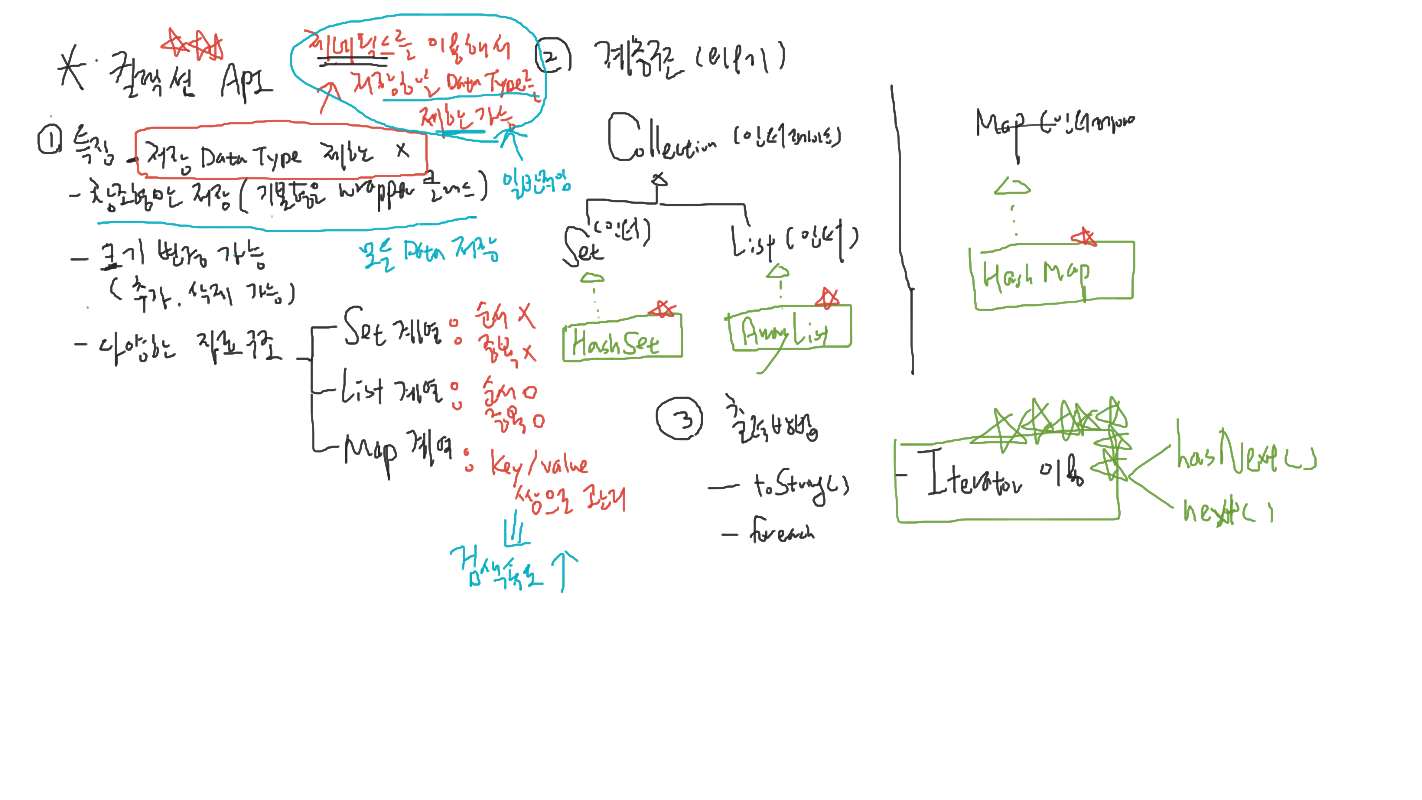 * 컬렉션 API
제네릭스를 이용해서
저장할 Data Type을
제한 가능
일반적임
① 특징
- 저장 Data Type 제한 x
- 참조형만 저장 (기본형은 wrapper 클래스)
모든 Data 저장
- 크기 변경 가능
(추가, 삭제 가능)
- 다양한 자료구조
Set 계열 : 순서 X
중복 X
List 계열 : 순서 O
중복 O
Map 계열 : key/value
쌍으로 관리
검색속도 ↑
② 계층구조 (외우기)
Collection (인터페이스)
Set (인터)
List (인터)
HashSet
ArrayList
Map (인터페이스)
HashMap
③ 출력방법
- toString()
- foreach
- Iterator 이용
hasNext()
next()